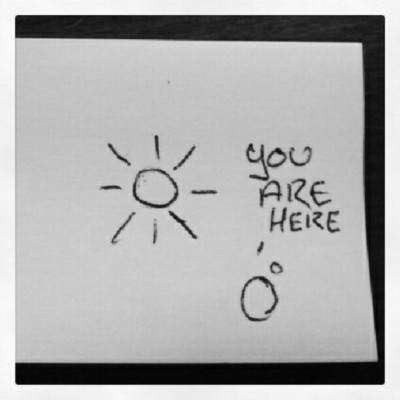 YOU
ARE
HERE